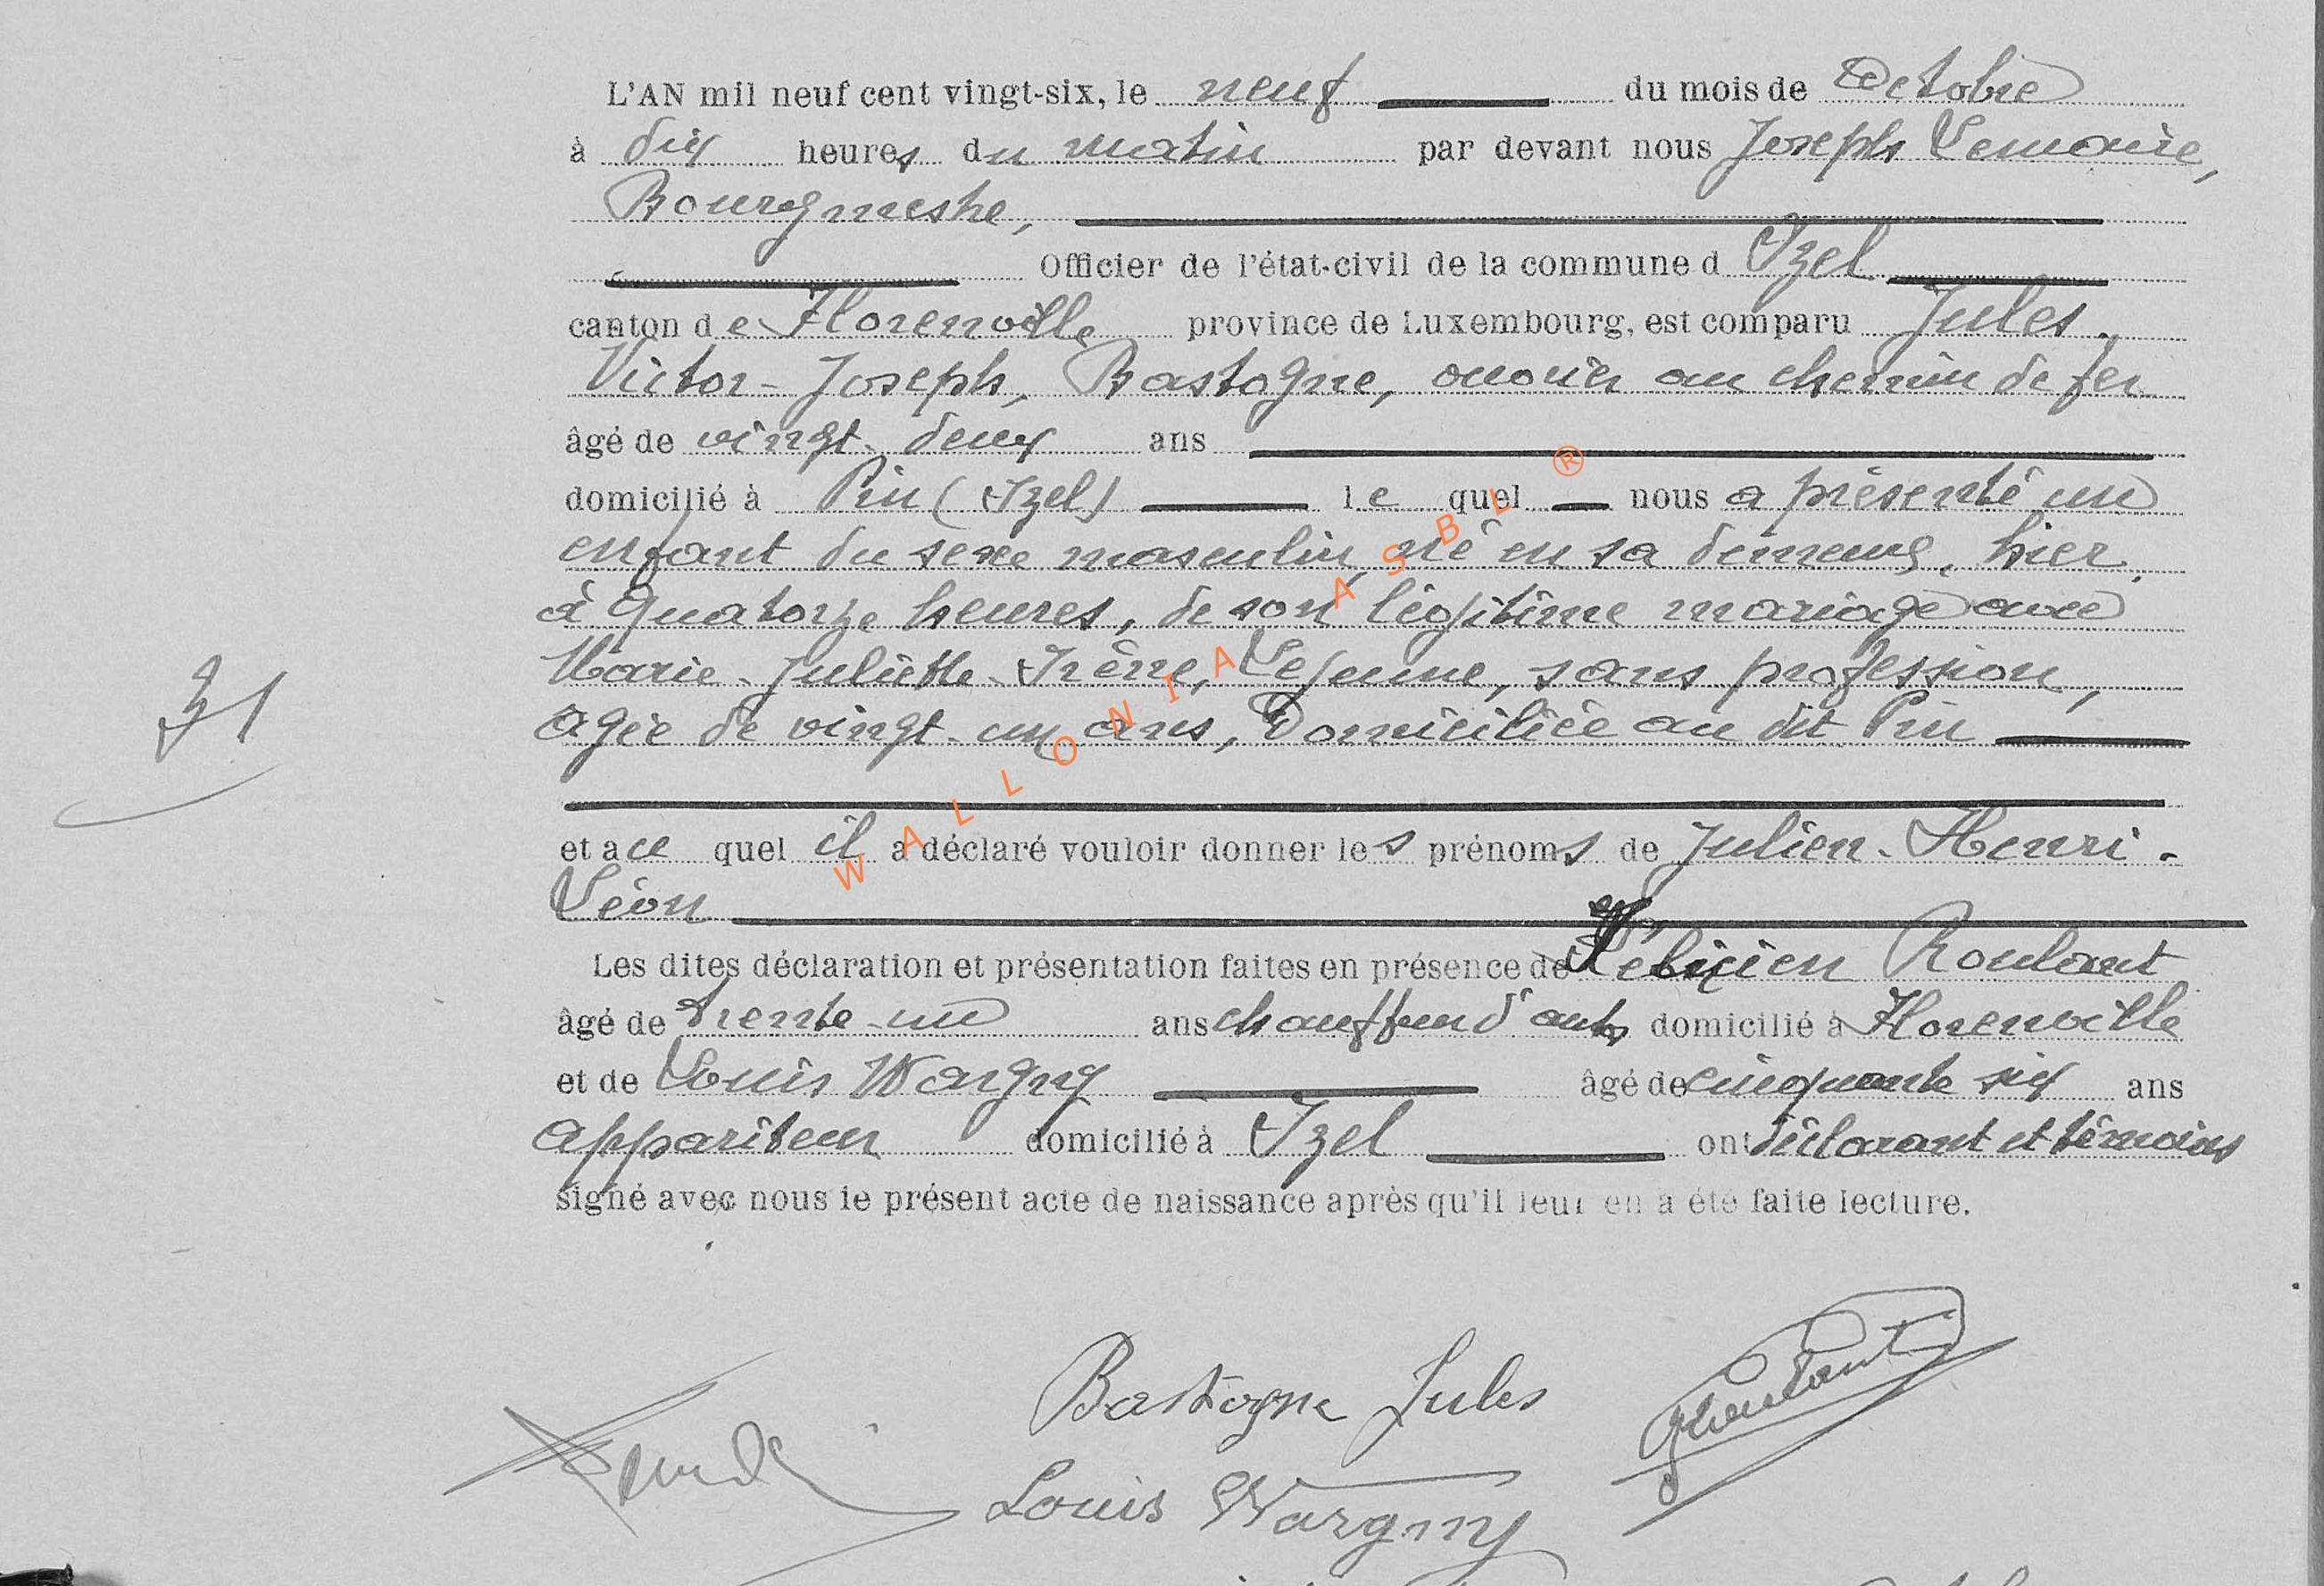 L'AN mil neuf cent vingt-six, le neuf du mois de Octobre
à dix heures du matin par devant nous Joseph Lemaire,
Bourgmestre,
Officier de l'état-civil de la commune d Izel
canton de Florenville province de Luxembourg, est comparu Jules-
Victor-Joseph, Bastogne, ouvrier au chemin de fer
âgé de vingt-deux ans
domicilié à Pin (Izel) le quel nous a présenté un
enfant du sexe masculin, né en sa demeure, hier,
à quatorze heures, de son légitime mariage avec
Marie-Juliette-Irène, Lejeune, sans profession,
âgée de vingt-un ans, Domiciliée au dit Pin
31
et a ce quel il a déclaré vouloir donner les prénoms de Julien-Henri-
Léon
Les dites déclaration et présentation faites en présence de Roulant
âgé de trente-un ans chauffeur d'auto domicilié à Florenville
et de Louis Wargny âgé de cinquante six ans
appariteur domicilié à Izel ont déclarant et témoins
signé avec nous le présent acte de naissance après qu'il leur en a été faite lecture.
Bastogne Jules
Roulant
Louis Wargny
WALLONIA ASBL ®